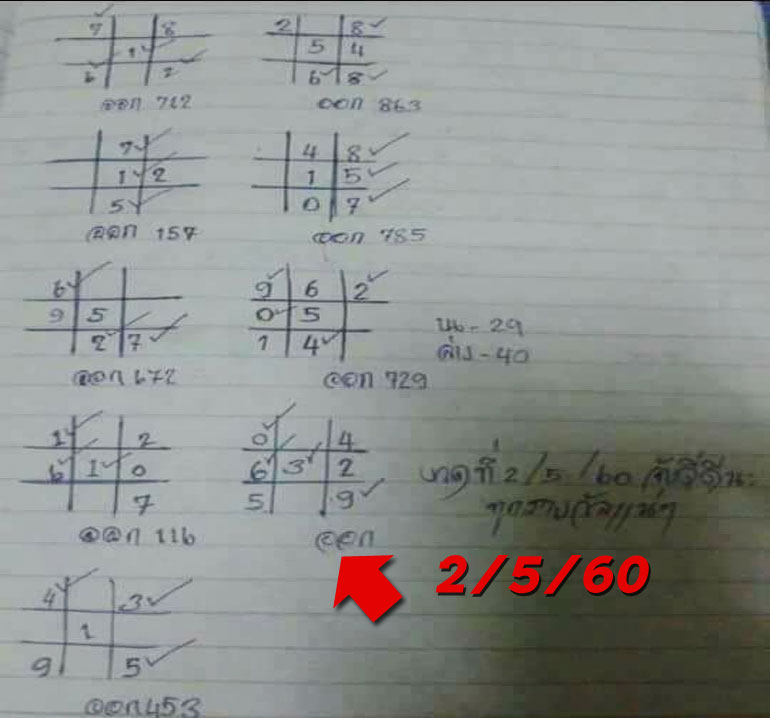 7 8
1
6 2
ออก 712
2 8
5 4
6 8
ออก 863
7
1 2
5
ออก 157
4 8
1 5
0 7
ออก 785
6
9 5
2 7
ออก 672
9 6 2
0 5
1 4
ออก 729
บน - 29
ล่าง - 40
1 2
6 1 0
7
ออก 116
0 4
6 3 2
5 9
ออก
งวดที่ 2/5/60
2/5/60
4 3
1
9 5
ออก 453